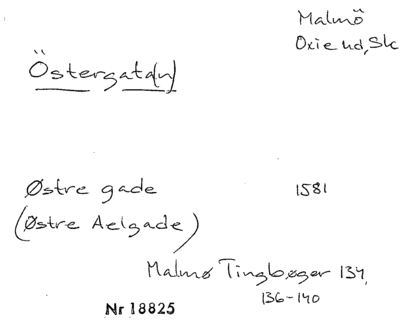 Malmö
Oxie hd, Sk
Östergata(n)
Østre gade 1581
(Østre Aelgade)
Malmø Tingbøger 134,
136-140
Nr 18825